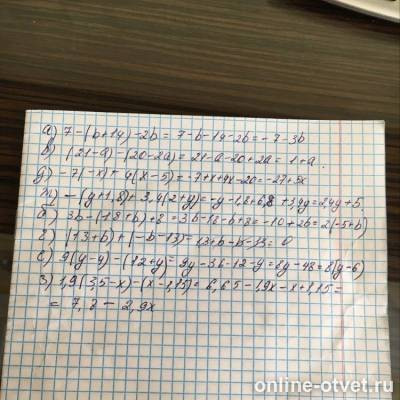 а) 7-(b+14)-2b= 7-b-14-2b=-7-3b
в) (21-a)-(20-2a)=21-a-20+2a= 1+a
д) -7(-x)+ 4(x-5)=-7+x+4x-20=-27+5x
ж) -(y+1,8)+3,4(2+y)=-y-1,8+6,8+3,4y=2,4y+5
б) 3b-(18+b)+8=3b-18-b+8=-10+2b=2(-5+b)
г) (13+b)+(-b-13)=13+b-b-13=0
е) 9(y-4)-(12+y)=9y-36-12-y=8y-48=8(y-6)
з) 1,9(3,5-x)-(x-1,15)= 6,65-1,9x-x+1,15=
= 7,8-2,9x
online-otvet.ru